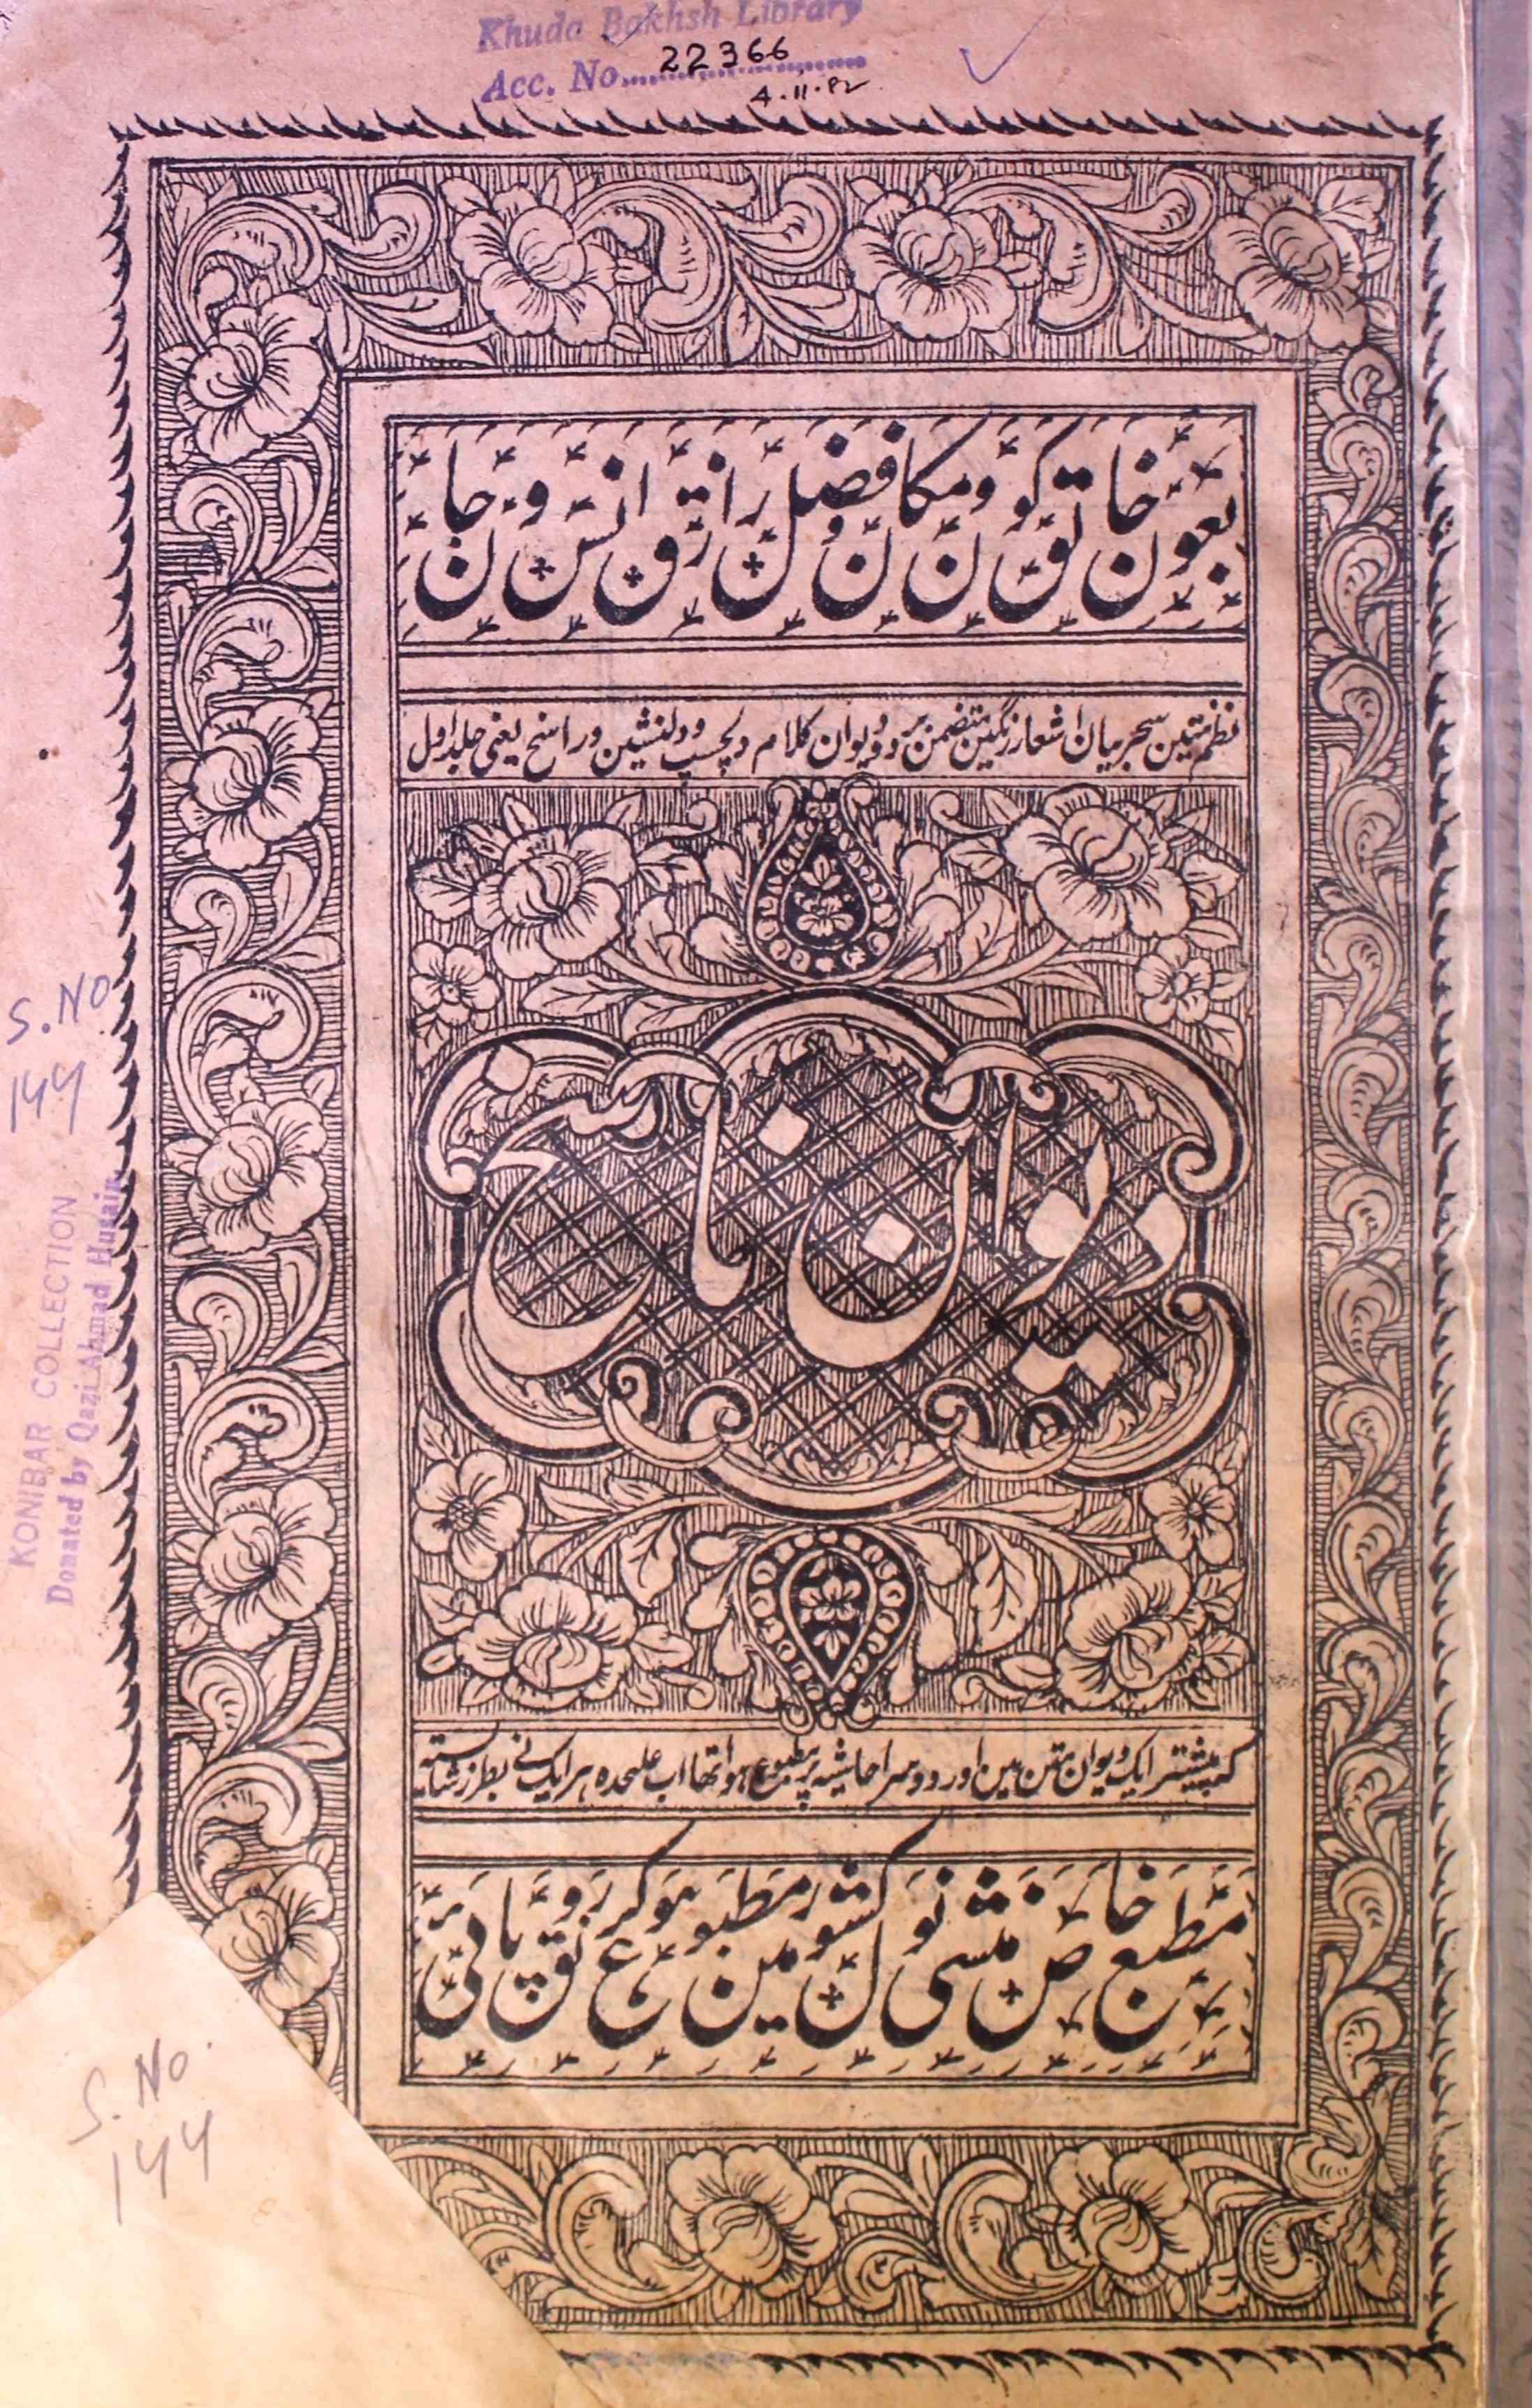 Khuda Bakhsh Library
Acc. No. 22366
4.11.82
بعون خالق کون و مکان و فضل رازق انس و جان
نظم متین سحر بیان اشعار رنگین متضمن بر دو دیوان کلام دلچسپ و دلنشین و راسخ یعنی جلد اول
دیوان ناسخ
کہ پیشتر ایک دیوان متن مین اور دوسرا حاشیہ پر مطبوع ہوا تھا اب علیحدہ ہر ایک نے بطرز شایستہ
مطبع خاص منشی نولکشور مین مطبوع ہو کر رونق پائی
S. NO
144
KONIBAR COLLECTION
Donated by Qazi Ahmad Husain
S. No.
144